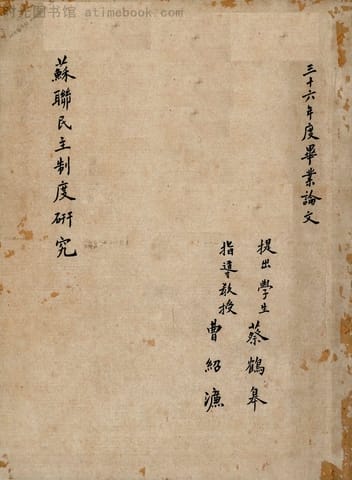 时光图书馆 atimebook.com
三十六年度畢業論文
提出學生 蔡鶴皋
指導教授 曹紹濂
蘇聯民主制度研究